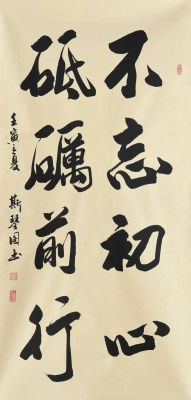 不忘初心
砥礪前行
壬寅之夏
斯琴图书